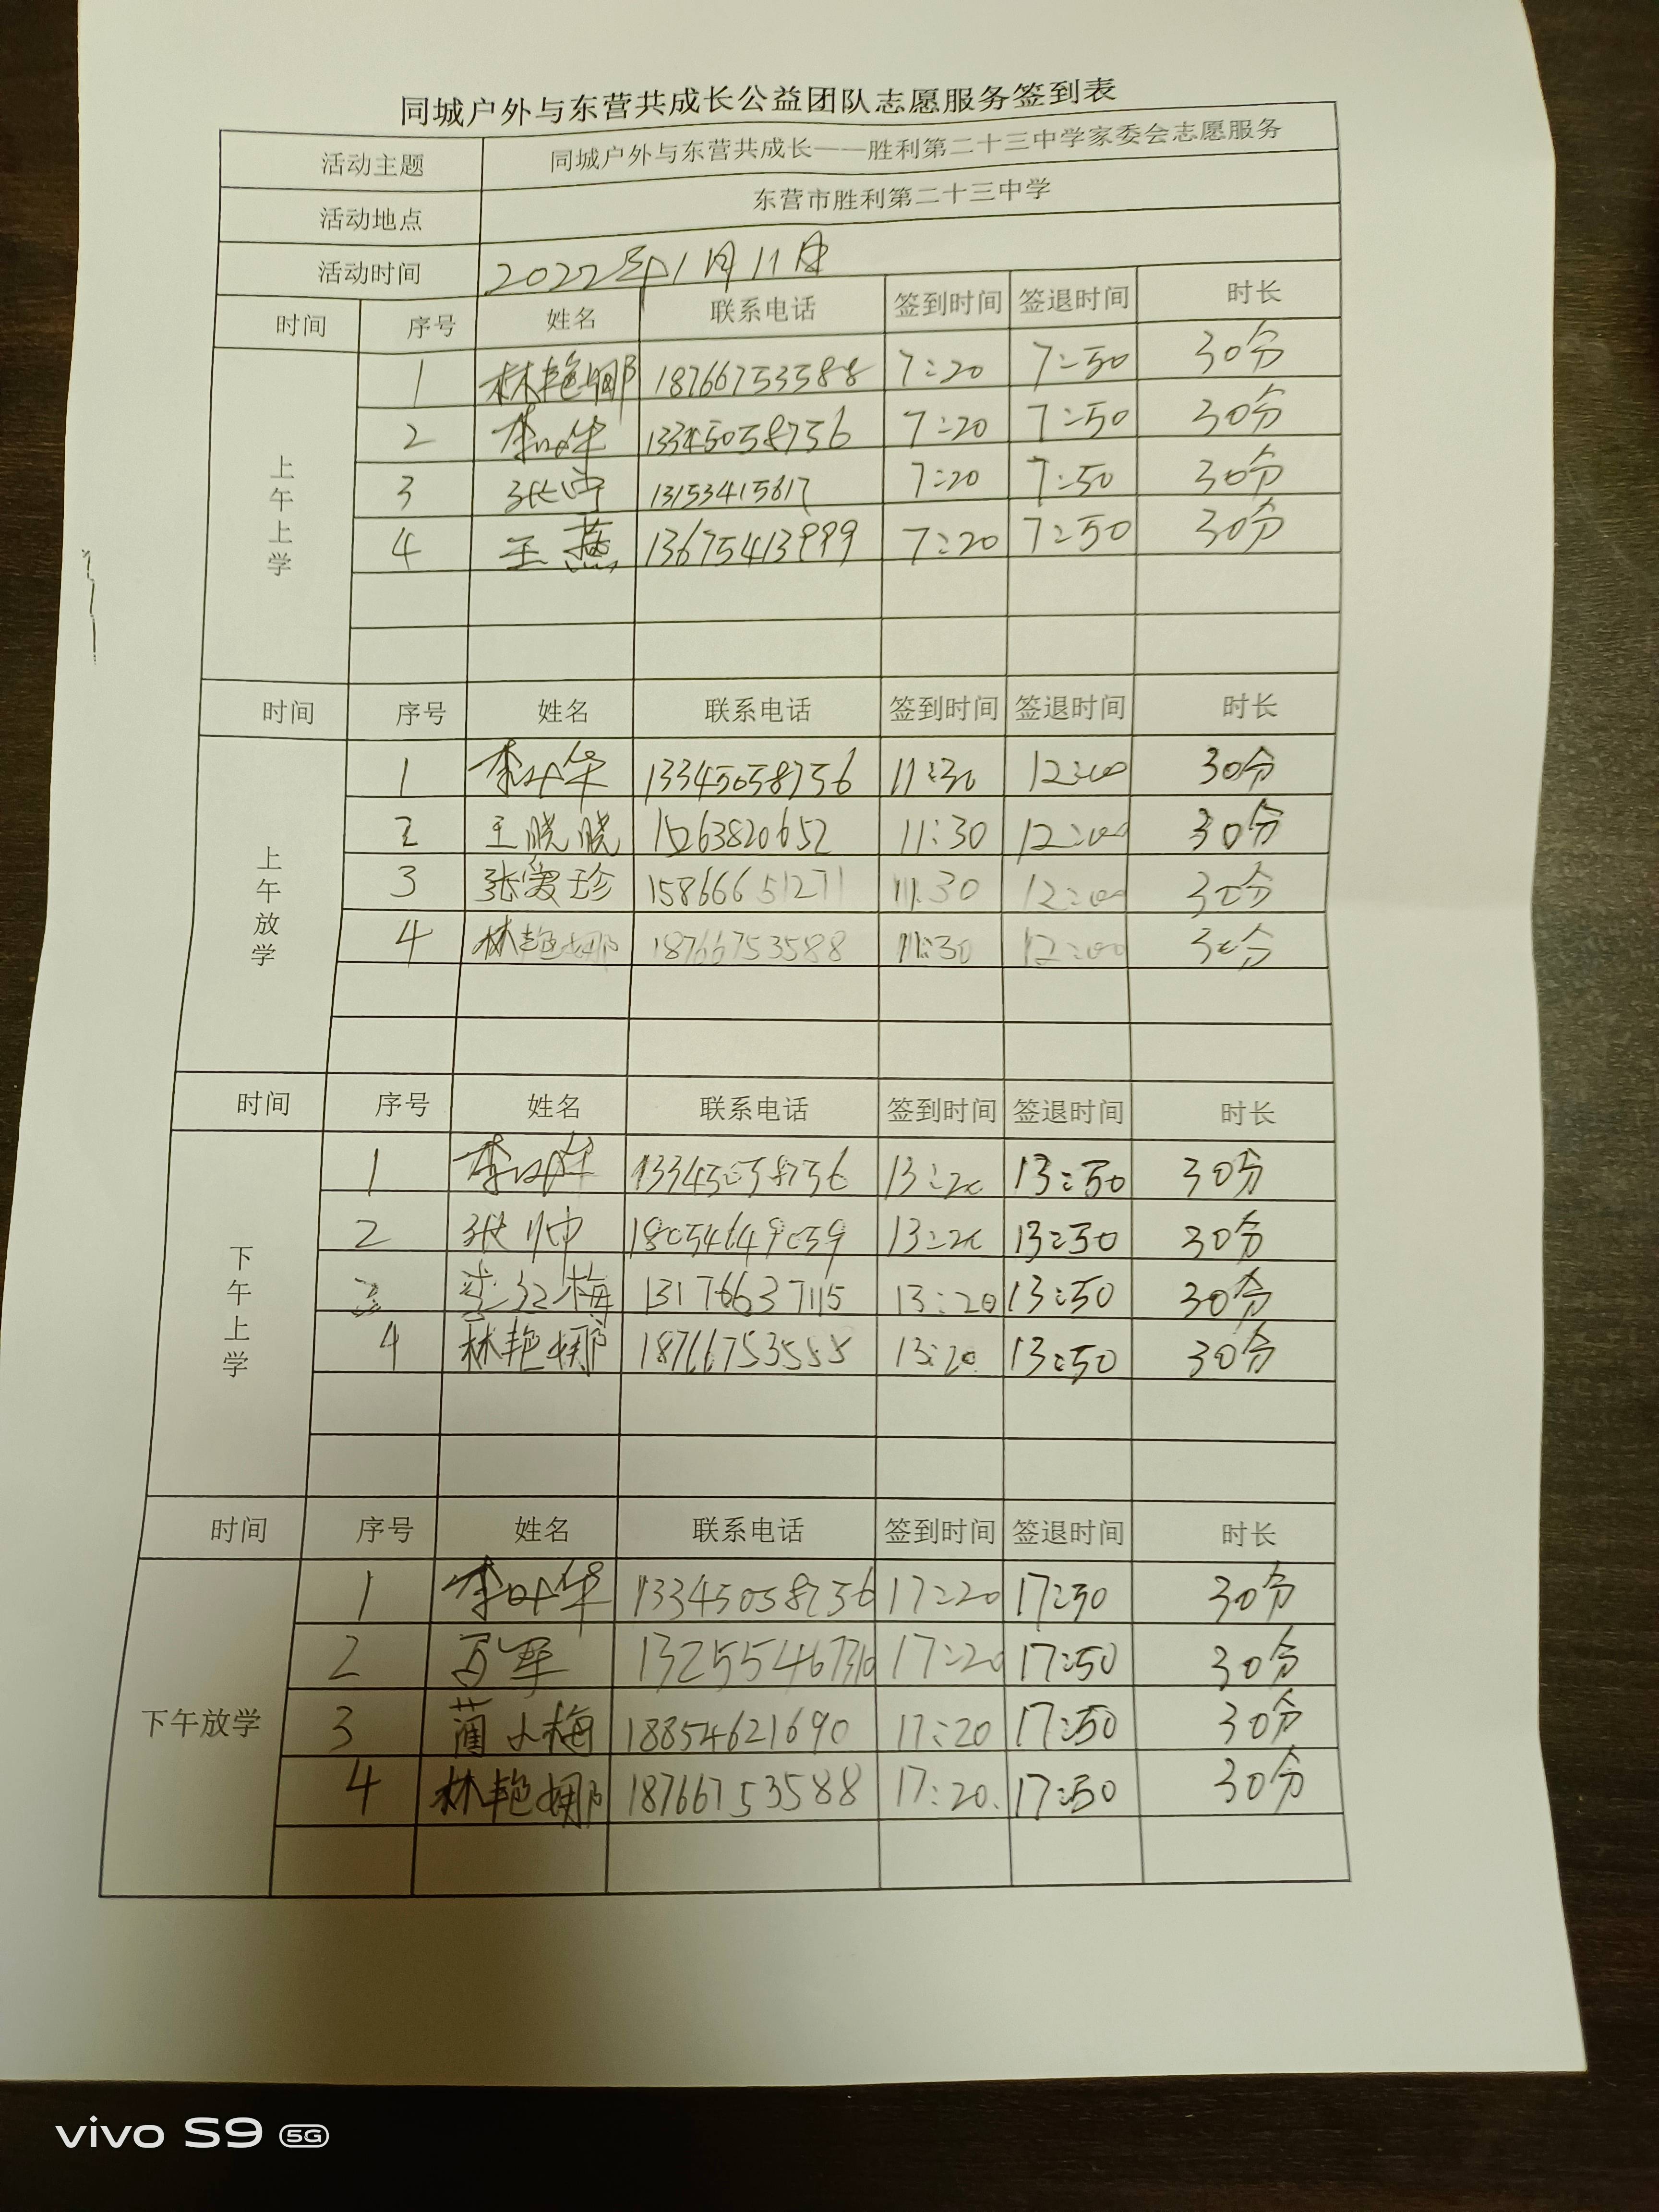 同城户外与东营共成长公益团队志愿服务签到表
活动主题 同城户外与东营共成长——胜利第二十三中学家委会志愿服务
活动地点 东营市胜利第二十三中学
活动时间 2022年1月11日
时间 序号 姓名 联系电话 签到时间 签退时间 时长
上午上学
1 林艳娜 18766753588 7:20 7:50 30分
2 李叶华 13345058756 7:20 7:50 30分
3 张宁 13153415617 7:20 7:50 30分
4 王燕 13675413999 7:20 7:50 30分
时间 序号 姓名 联系电话 签到时间 签退时间 时长
上午放学
1 李叶华 13345058756 11:30 12:00 30分
2 王晓晓 15263820652 11:30 12:00 30分
3 张爱珍 15866651271 11:30 12:00 30分
4 林艳娜 18766753588 11:30 12:00 30分
时间 序号 姓名 联系电话 签到时间 签退时间 时长
下午上学
1 李叶华 13345058756 13:20 13:50 30分
2 张帅 18054649059 13:20 13:50 30分
3 红梅 13176637115 13:20 13:50 30分
4 林艳娜 18766753588 13:20 13:50 30分
时间 序号 姓名 联系电话 签到时间 签退时间 时长
下午放学
1 李叶华 13345058756 17:20 17:50 30分
2 军 17:20 17:50 30分
3 蔺小梅 18854621690 17:20 17:50 30分
4 林艳娜 18766753588 17:20 17:50 30分
vivo S9 5G